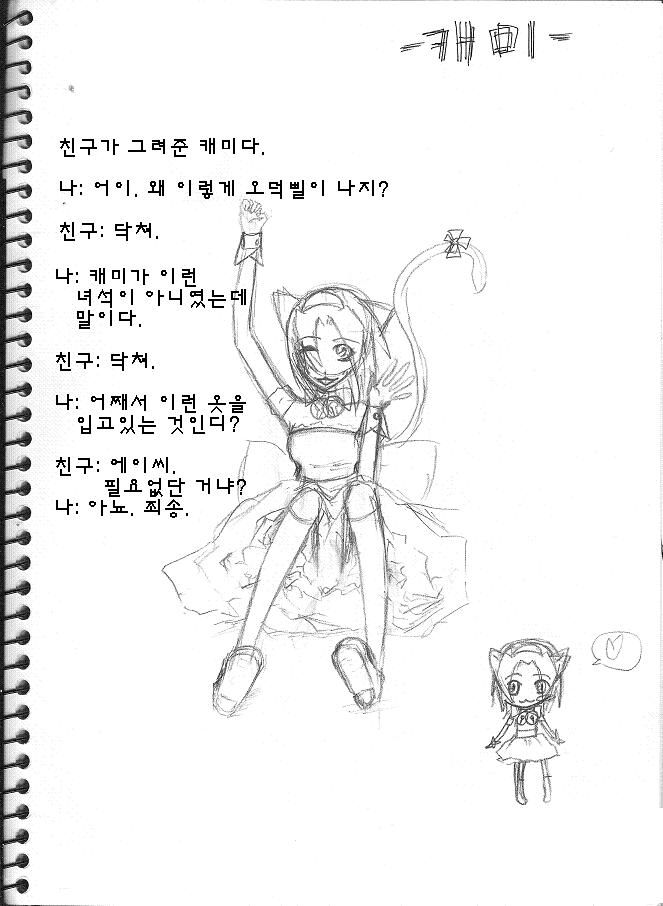 -캐미-
친구가 그려준 캐미다.
나: 어이. 왜 이렇게 오덕삘이 나지?
친구: 닥쳐.
나: 캐미가 이런
녀석이 아니였는데
말이다.
친구: 닥쳐.
나: 어째서 이런 옷을
입고있는 것인디?
친구: 에이씨.
필요없단 거냐?
나: 아뇨. 죄송.